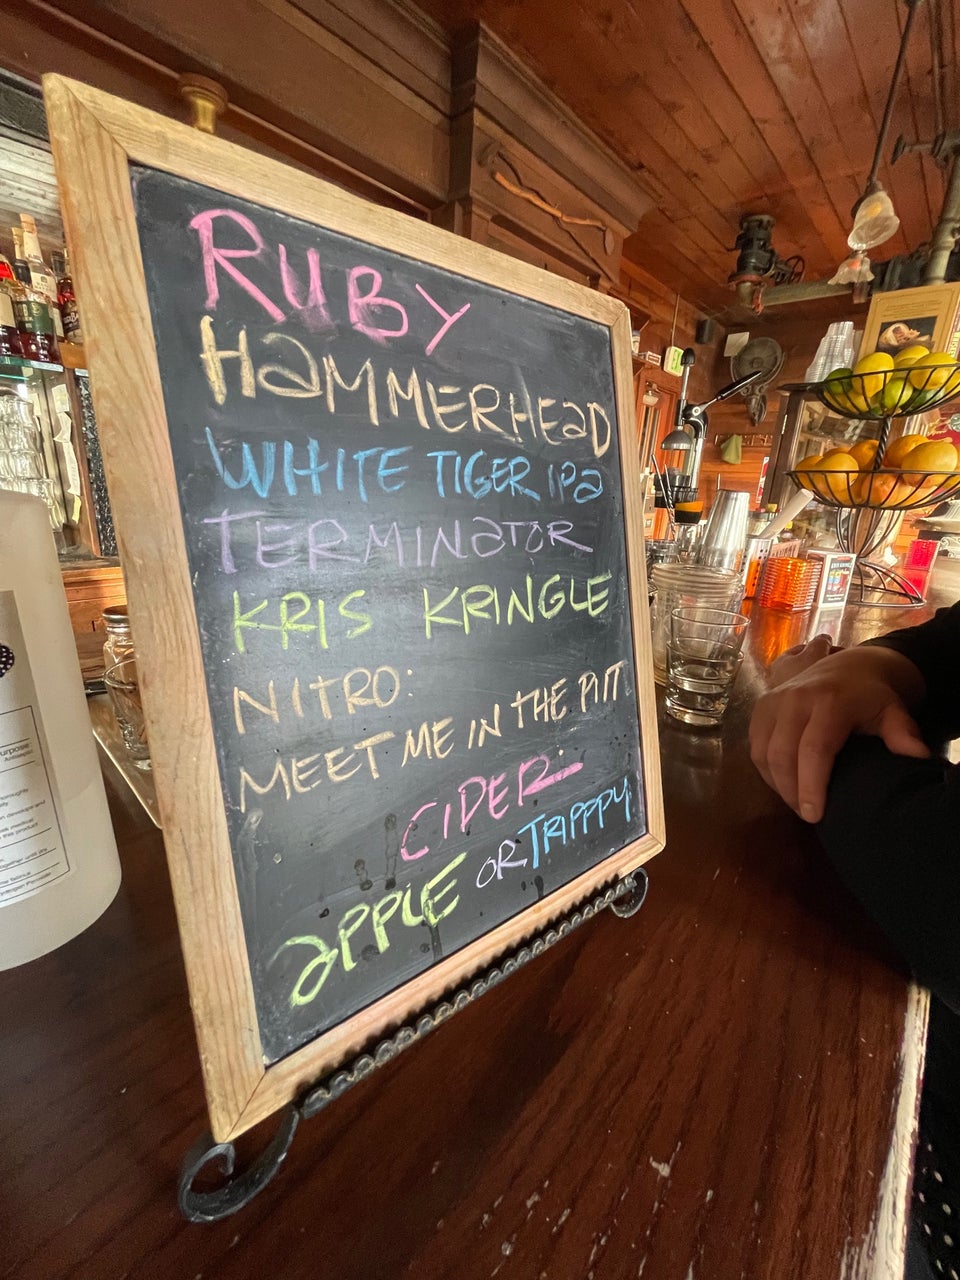 RUBY
HAMMERHEAD
WHITE TIGER IPA
TERMINATOR
KRIS KRINGLE
NITRO:
MEET ME IN THE PIT
CIDER-
APPLE OR TRIPPPY